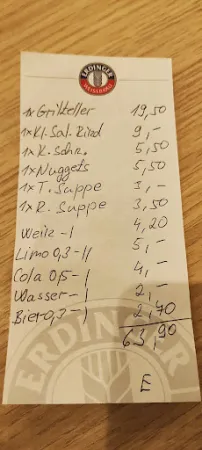 ERDINGER
WEISSBRÄU
1x Grillteller 19,50
1x Kl. Sal. Rind 9,-
1x K. Schn. 5,50
1x Nuggets 5,50
1x T. Suppe 3,-
1x R. Suppe 3,50
Weiz - I 4,20
Limo 0,3 - II 5,-
Cola 0,5 - I 4,-
Wasser - I 2,-
Bier 0,3 - I 2,40
63,90
E
ERDINGER